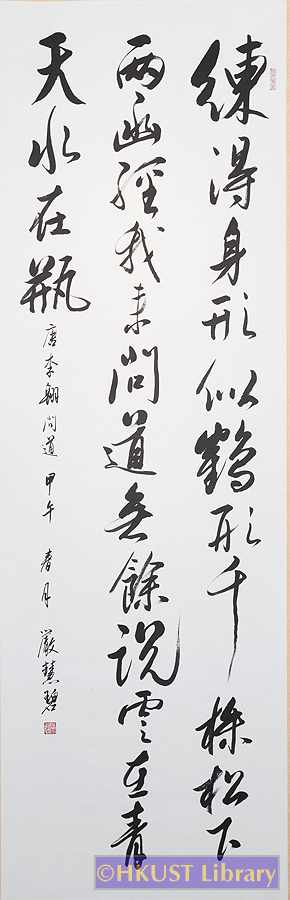 練得身形似鶴形千株松下
兩函經我來問道無餘說雲在青
天水在瓶
唐李翱問道 甲午 春月 嚴慧碧
©HKUST Library